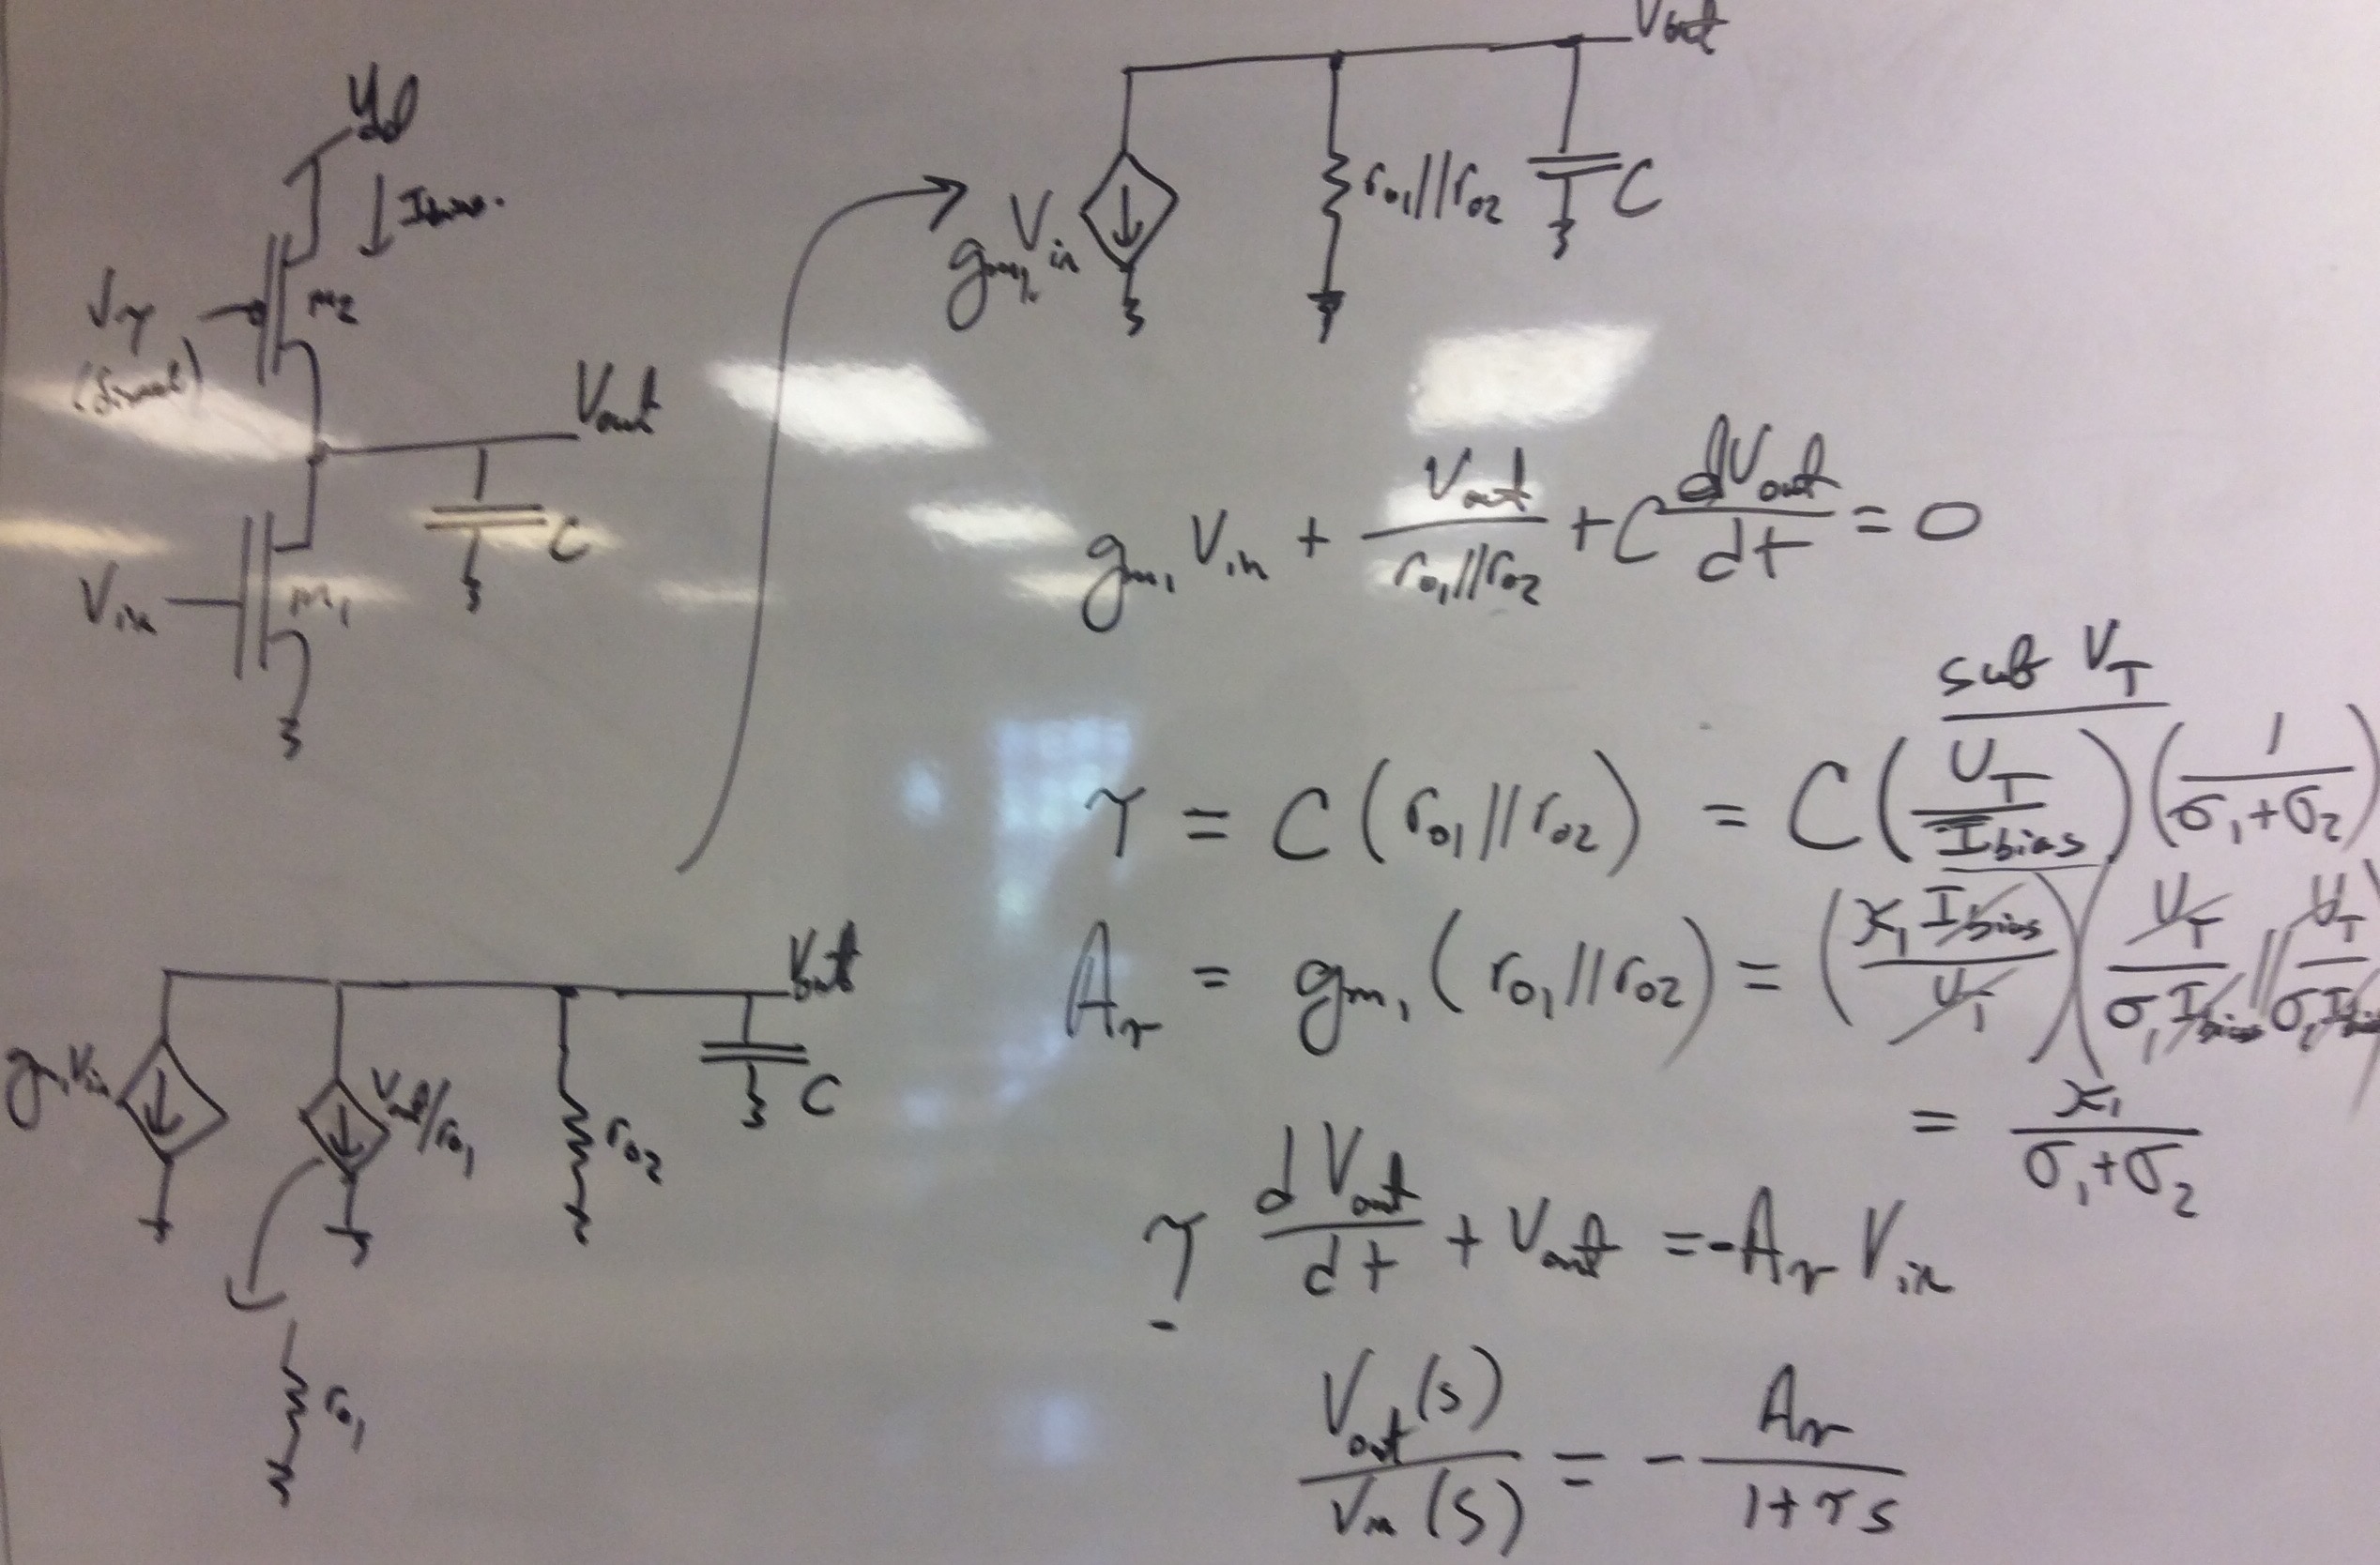 Vdd
Ibias.
Vτ
(fixed)
M2
Vout
C
Vin
M1
Vout
gm1 Vin
ro1//ro2
C
gm1 Vin + Vout/(ro1//ro2) + C dVout/dt = 0
sub VT
τ = C (ro1//ro2) = C (UT/Ibias) (1/(σ1+σ2))
Av = gm1 (ro1//ro2) = (x1 Ibias/UT) (UT/(σ1 Ibias) // UT/(σ1 Ibias
= x1/(σ1+σ2)
τ dVout/dt + Vout = -Av Vin
Vout(s)/Vin(s) = - Av/(1+τs)
Vout
gm1 Vin
Vout/ro1
ro2
C
ro1